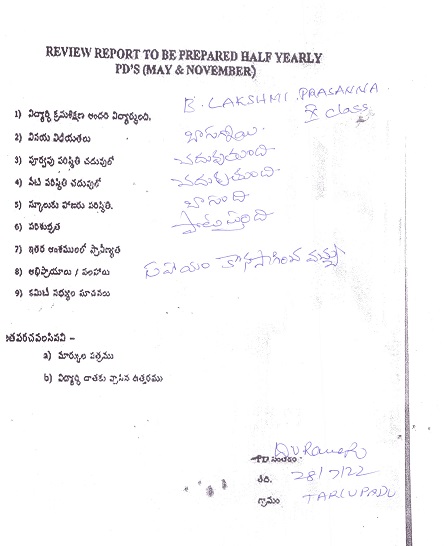 REVIEW REPORT TO BE PREPARED HALF YEARLY
PD'S (MAY & NOVEMBER)
B. LAKSHMI. PRASANNA
X class
1) విద్యార్థి క్రమశిక్షణ అందరి విద్యార్థులంది.
2) వినయ విధేయతలు బాగున్నాయి.
3) పూర్వపు పరిస్థితి చదువులో చదువుతుంది
4) నేటి పరిస్థితి చదువులో చదువుతుంది
5) స్కూలుకు హాజరు పరిస్థితి. బాగుంది
6) పరిశుభ్రత
7) ఇతర అంశములలో ప్రావీణ్యత
8) అభిప్రాయాలు / సలహాలు సహాయం కొనసాగించ వచ్చు
9) కమిటీ సభ్యుల సూచనలు
తపరచవలసినవి –
a) మార్కుల పత్రము
b) విద్యార్థి దాతకు వ్రాసిన ఉత్తరము
PD సంతకం
తేది. 28/7/22
గ్రామం TARLUPADU